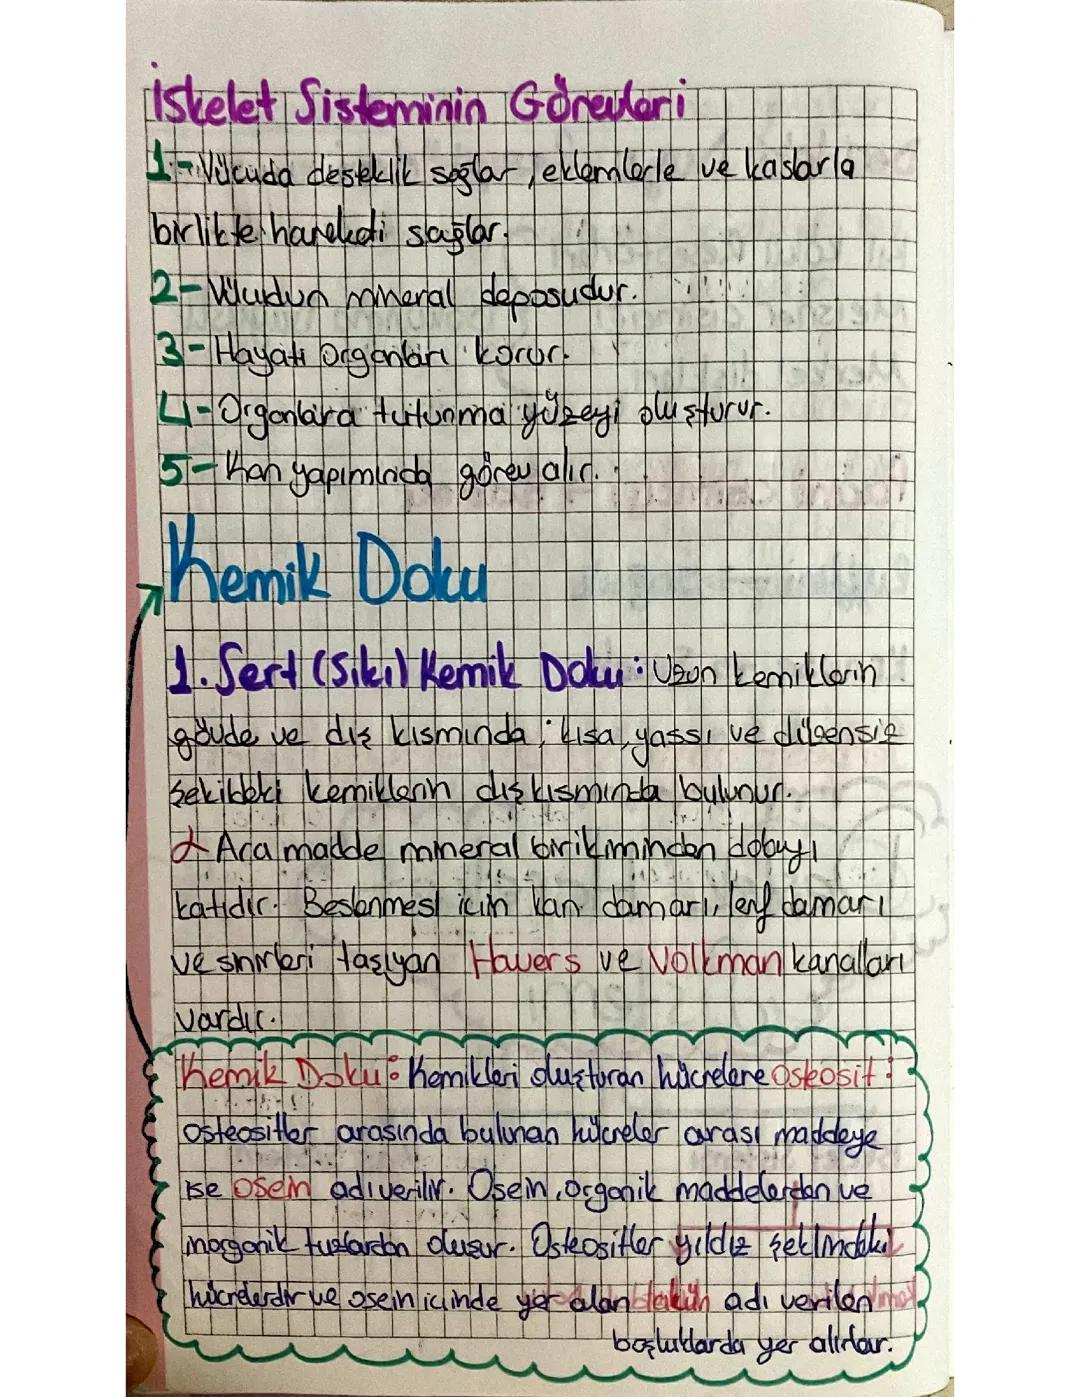 İskelet Sisteminin Görevleri
1.- Vücuda desteklik sağlar, eklemlerle ve kaslarla
birlikte hareketi sağlar.
2- Vücudun mineral deposudur.
3- Hayati Organları korur.
4- Organlara tutunma yüzeyi oluşturur.
5- Kan yapımında görev alır.
Kemik Doku
1. Sert (Sıkı) Kemik Doku: Uzun kemiklerin
gövde ve dış kısmında; kısa, yassı ve düzensiz
şekildeki kemiklerin dış kısmında bulunur.
Ara madde mineral birikiminden dolayı
katıdır. Beslenmesi için kan damarı, lenf damarı
ve sinirleri taşıyan Havers ve Volkman kanalları
vardır.
Kemik Doku: Kemikleri oluşturan hücrelere osteosit;
osteositler arasında bulunan hücreler arası maddeye
ise osein adı verilir. Osein, organik maddelerden ve
inorganik tuzlardan oluşur. Osteositler yıldız şeklindeki
hücrelerdir ve osein içinde yer alan lakün adı verilen
boşluklarda yer alırlar.